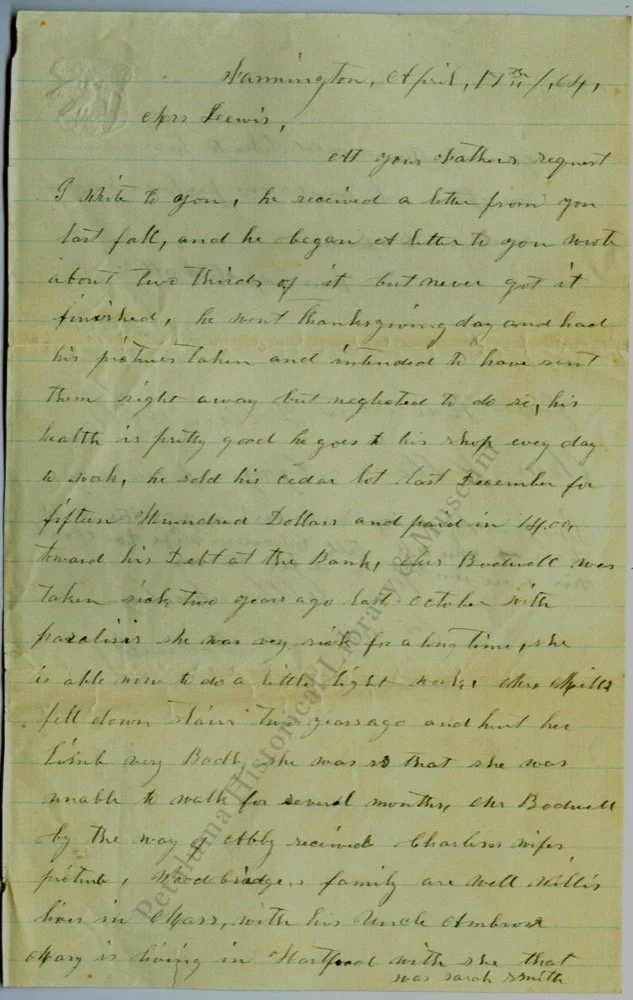 Farmington, April, 17th /, 64,
Mrs Lewis,
At your Fathers request
I write to you, he received a letter from you
last fall, and he began A letter to you wrote
about two thirds of it but never got it
finished, he went thanksgiving day and had
his pictures taken and intended to have sent
them right away but neglected to do so, his
health is pretty good he goes to his shop every day
to work, he sold his cedar lot last December for
fifteen Hunndred Dollars and paid in 1400,
toward his Debt at the Bank, Mrs Bodwell was
taken sick two years ago last October with
paralisis she was very sick for a long time, she
is able now to do a little light work, Mrs Mills
fell down stairs two years ago and hurt her
Limb very Badly she was so that she was
unable to walk for several months, Mrs Bodwell
by the way of Abby received Charleses wifes
picture, Woodbridges family are well Willis
lives in Mass, with his Uncle Ambrose
Mary is living in Hartford with she that
was sarah smith
Petaluma Historical Library & Museum